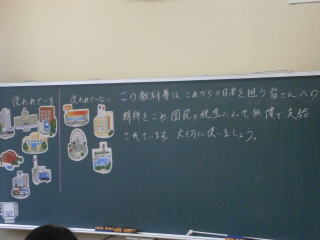 使われている
使われていない
この教科書は、これからの日本を担う皆さんへの
期待をこめ、国民の税金によって無償で支給
されています。大切に使いましょう。